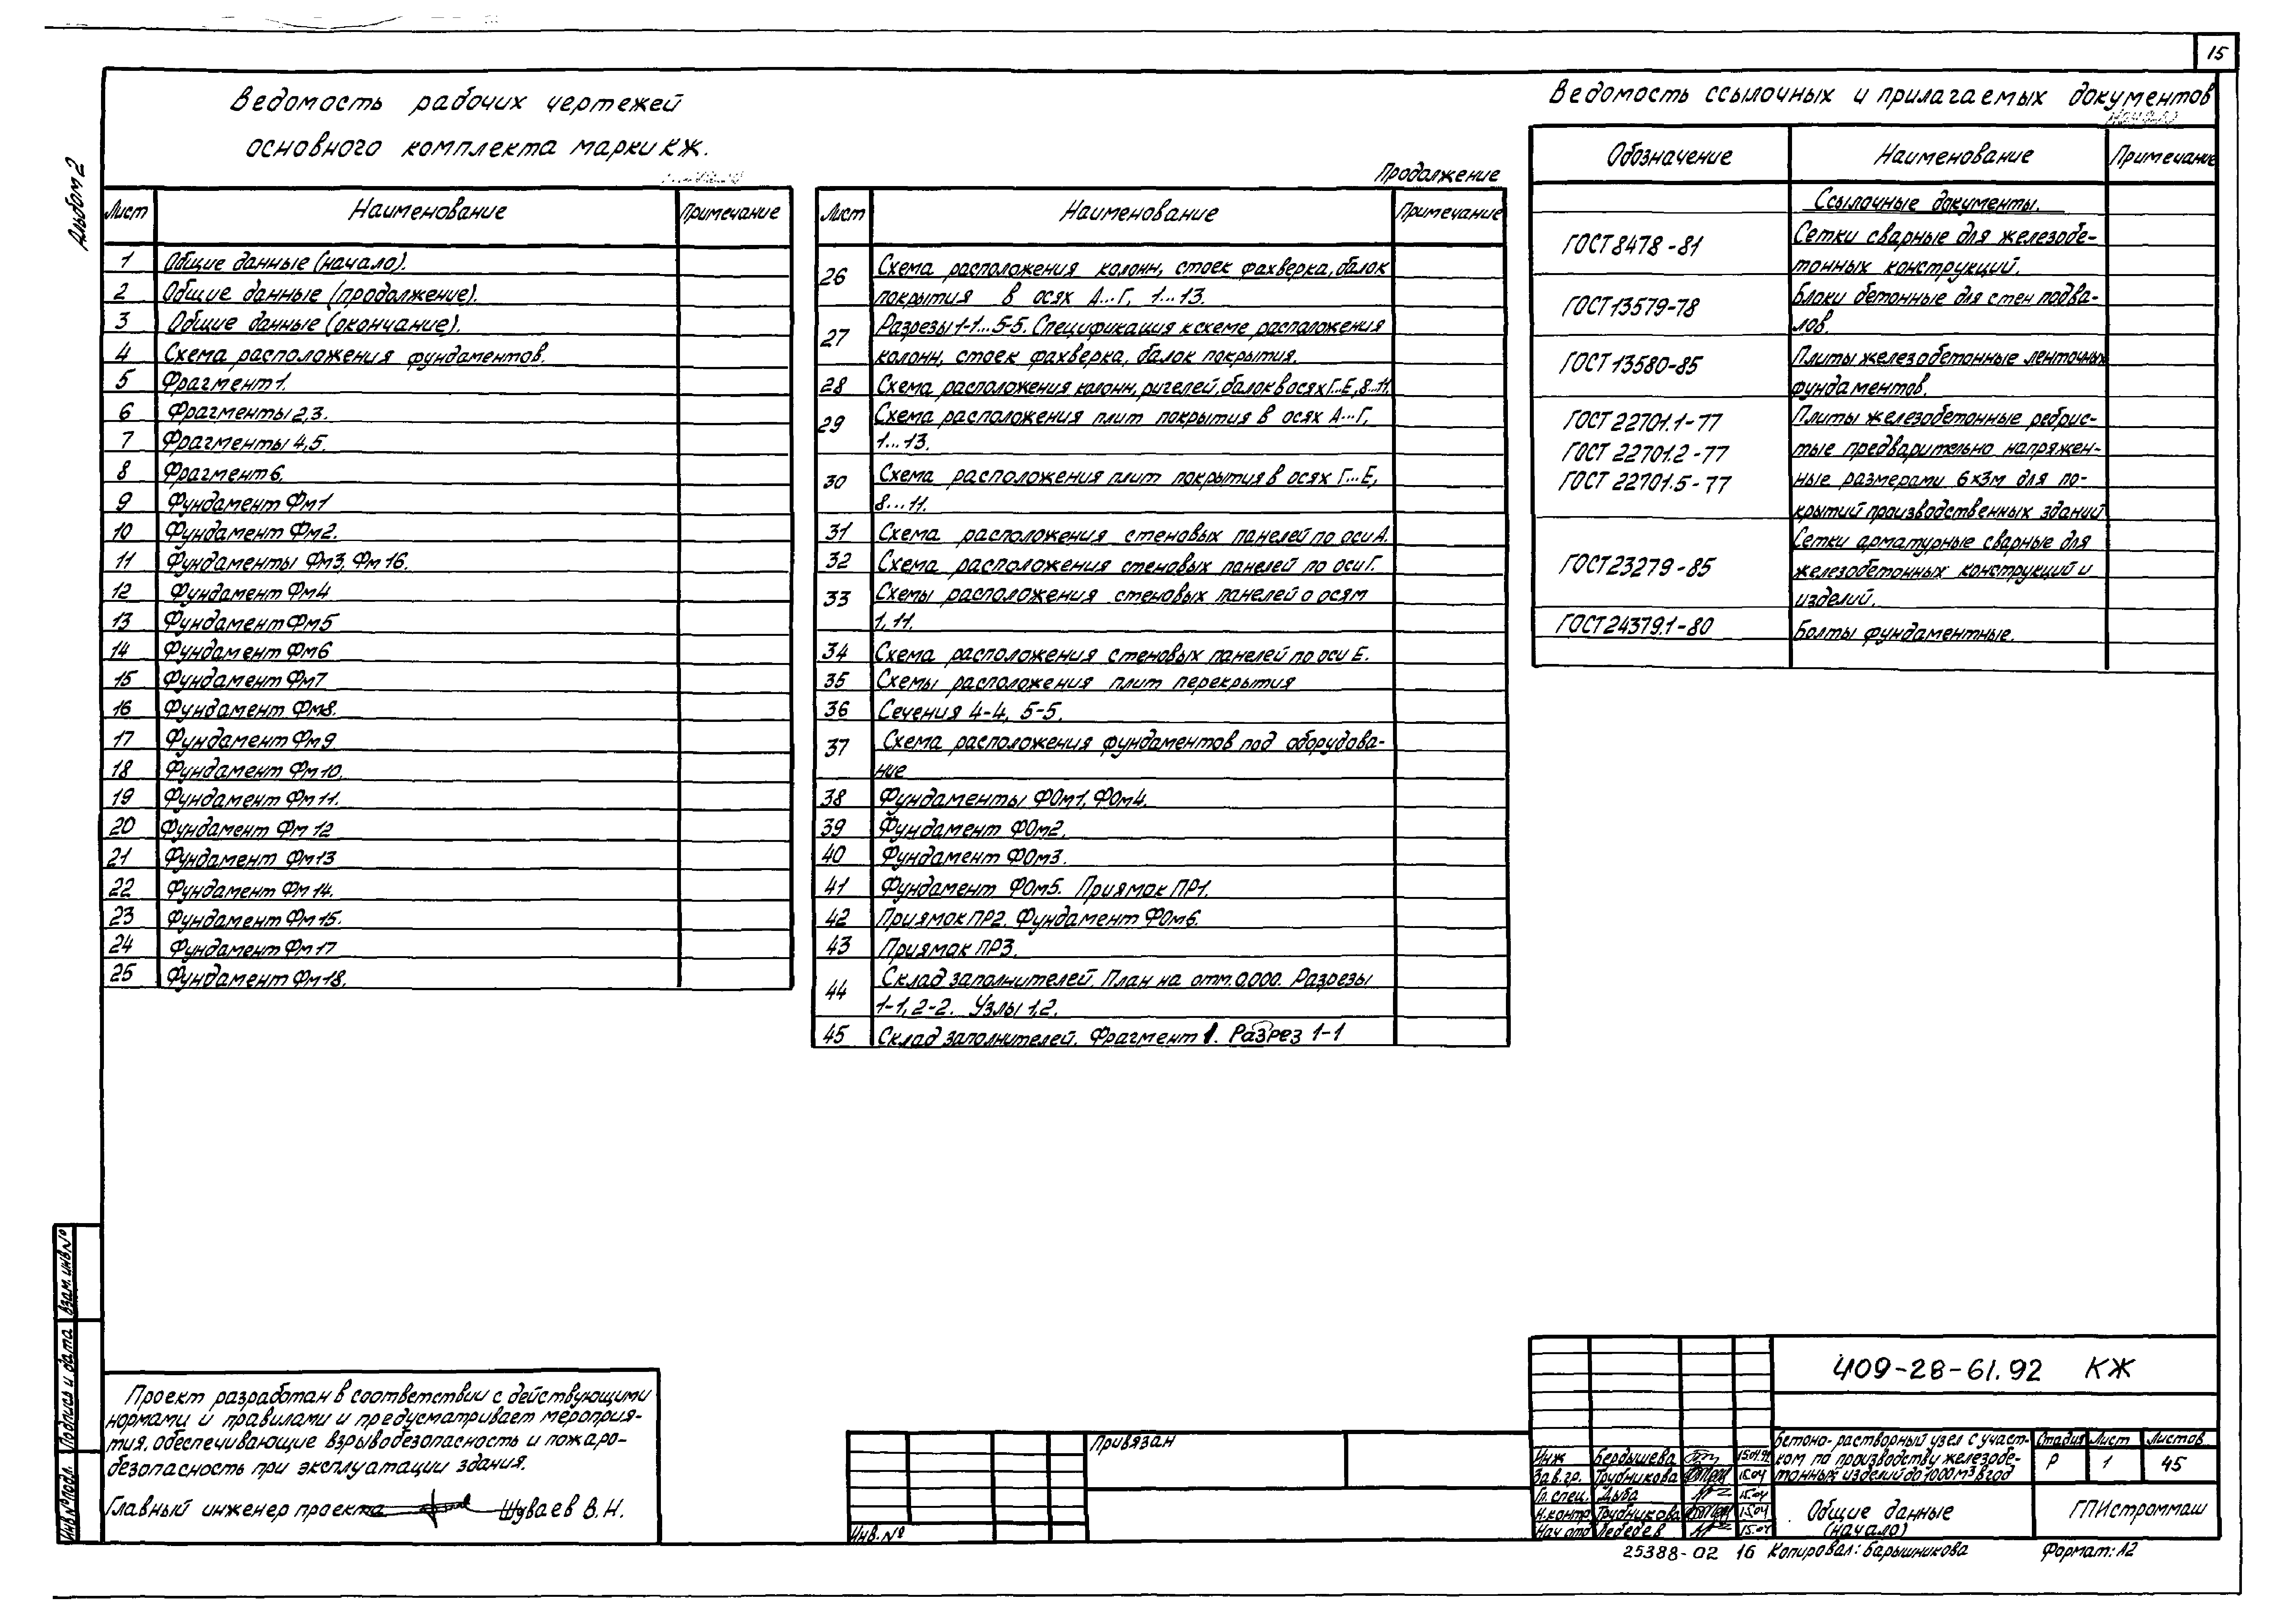 15
Альбом 2
Ведомость рабочих чертежей
основного комплекта марки КЖ.
Лист Наименование Примечание
1 Общие данные (начало).
2 Общие данные (продолжение).
3 Общие данные (окончание).
4 Схема расположения фундаментов.
5 Фрагмент 1.
6 Фрагменты 2,3.
7 Фрагменты 4,5.
8 Фрагмент 6.
9 Фундамент Фм1
10 Фундамент Фм2.
11 Фундаменты Фм3, Фм16.
12 Фундамент Фм4
13 Фундамент Фм5
14 Фундамент Фм6
15 Фундамент Фм7
16 Фундамент Фм8.
17 Фундамент Фм9
18 Фундамент Фм10.
19 Фундамент Фм11.
20 Фундамент Фм12
21 Фундамент Фм13
22 Фундамент Фм14.
23 Фундамент Фм15.
24 Фундамент Фм17
25 Фундамент Фм18.
Продолжение
Лист Наименование Примечание
26 Схема расположения колонн, стоек фахверка, балок
покрытия в осях А...Г, 1...13.
27 Разрезы 1-1...5-5. Спецификация к схеме расположения
колонн, стоек фахверка, балок покрытия.
28 Схема расположения колонн, ригелей, балок в осях Г...Е, 8...11.
29 Схема расположения плит покрытия в осях А...Г,
1...13.
30 Схема расположения плит покрытия в осях Г...Е,
8...11.
31 Схема расположения стеновых панелей по оси А.
32 Схема расположения стеновых панелей по оси Г.
33 Схемы расположения стеновых панелей о осям
1, 11.
34 Схема расположения стеновых панелей по оси Е.
35 Схемы расположения плит перекрытия
36 Сечения 4-4, 5-5.
37 Схема расположения фундаментов под оборудова-
ние
38 Фундаменты ФОм1, ФОм4.
39 Фундамент ФОм2.
40 Фундамент ФОм3.
41 Фундамент ФОм5. Приямок ПР1.
42 Приямок ПР2. Фундамент ФОм6.
43 Приямок ПР3.
44 Склад заполнителей. План на отм. 0,000. Разрезы
1-1, 2-2. Узлы 1,2.
45 Склад заполнителей. Фрагмент 1. Разрез 1-1
Ведомость ссылочных и прилагаемых документов
Обозначение Наименование Примечание
Ссылочные документы.
ГОСТ 8478-81 Сетки сварные для железобе-
тонных конструкций.
ГОСТ 13579-78 Блоки бетонные для стен подва-
лов.
ГОСТ 13580-85 Плиты железобетонные ленточных
фундаментов.
ГОСТ 22701.1-77 Плиты железобетонные ребрис-
ГОСТ 22701.2-77 тые предварительно напряжен-
ГОСТ 22701.5-77 ные размерами 6х3м для по-
крытий производственных зданий
Сетки арматурные сварные для
ГОСТ 23279-85 железобетонных конструкций и
изделий.
ГОСТ 24379.1-80 Болты фундаментные.
Взам. инв.№
Подпись и дата
Инв.№ подл.
Проект разработан в соответствии с действующими
нормами и правилами и предусматривает мероприя-
тия, обеспечивающие взрывобезопасность и пожаро-
безопасность при эксплуатации здания.
Главный инженер проекта Шуваев В.Н.
Привязан
Инв.№
409-28-61.92 КЖ
Инж Бердышева 15.04.92
Зав.гр. Трубникова 15.04
Гл.спец. Дыба 15.04
Н.контр Трубникова 15.04
Нач отд Лебедев 15.04
Бетоно-растворный узел с участ-
ком по производству железобе-
тонных изделий до 1000 м³ в год
Стадия Лист Листов
Р 1 45
Общие данные
(начало)
ГПИстроммаш
25388-02 16 Копировал: Барышникова Формат: А2